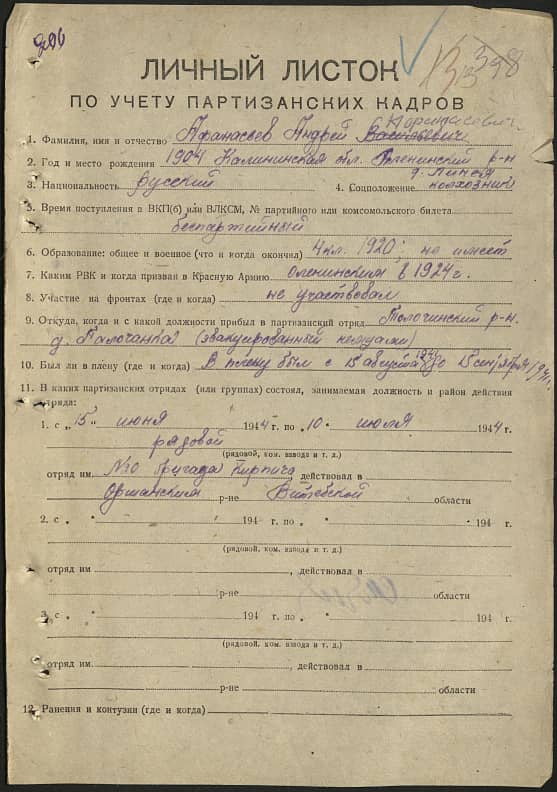 ЛИЧНЫЙ ЛИСТОК
ПО УЧЕТУ ПАРТИЗАНСКИХ КАДРОВ
1. Фамилия, имя и отчество Афанасьев Андрей Васильевич
2. Год и место рождения 1904 Калининская обл. Оленинский р-н
3. Национальность русский 4. Соцположение колхозник
5. Время поступления в ВКП(б) или ВЛКСМ, № партийного или комсомольского билета
беспартийный
6. Образование: общее и военное (что и когда окончил) 4 кл. 1920; не имеет
7. Каким РВК и когда призван в Красную Армию Оленинским в 1924 г.
8. Участие на фронтах (где и когда) не участвовал
9. Откуда, когда и с какой должности прибыл в партизанский отряд Толочинский р-н.
д. (эвакуированный немцами)
10. Был ли в плену (где и когда) В плену был с 15 августа до 15 сентября
11. В каких партизанских отрядах (или группах) состоял, занимаемая должность и район действия
отряда:
1. с „15 „ июня 1944 г. по „10 „ июля 1944 г.
рядовой
(рядовой, ком. взвода и т. д.)
отряд им. №10 бригада Кирпича, действовал в
Оршанским р-не Витебской области
2. с „ " 194 г. по „ " 194 г.
(рядовой, ком. взвода и т. д.)
отряд им , действовал в
р-не области
3. с „ " 194 г. по „ " 194 г.
(рядовой, ком. взвода и т. д.)
отряд им , действовал в
р-не области
12. Ранения и контузии (где и когда)